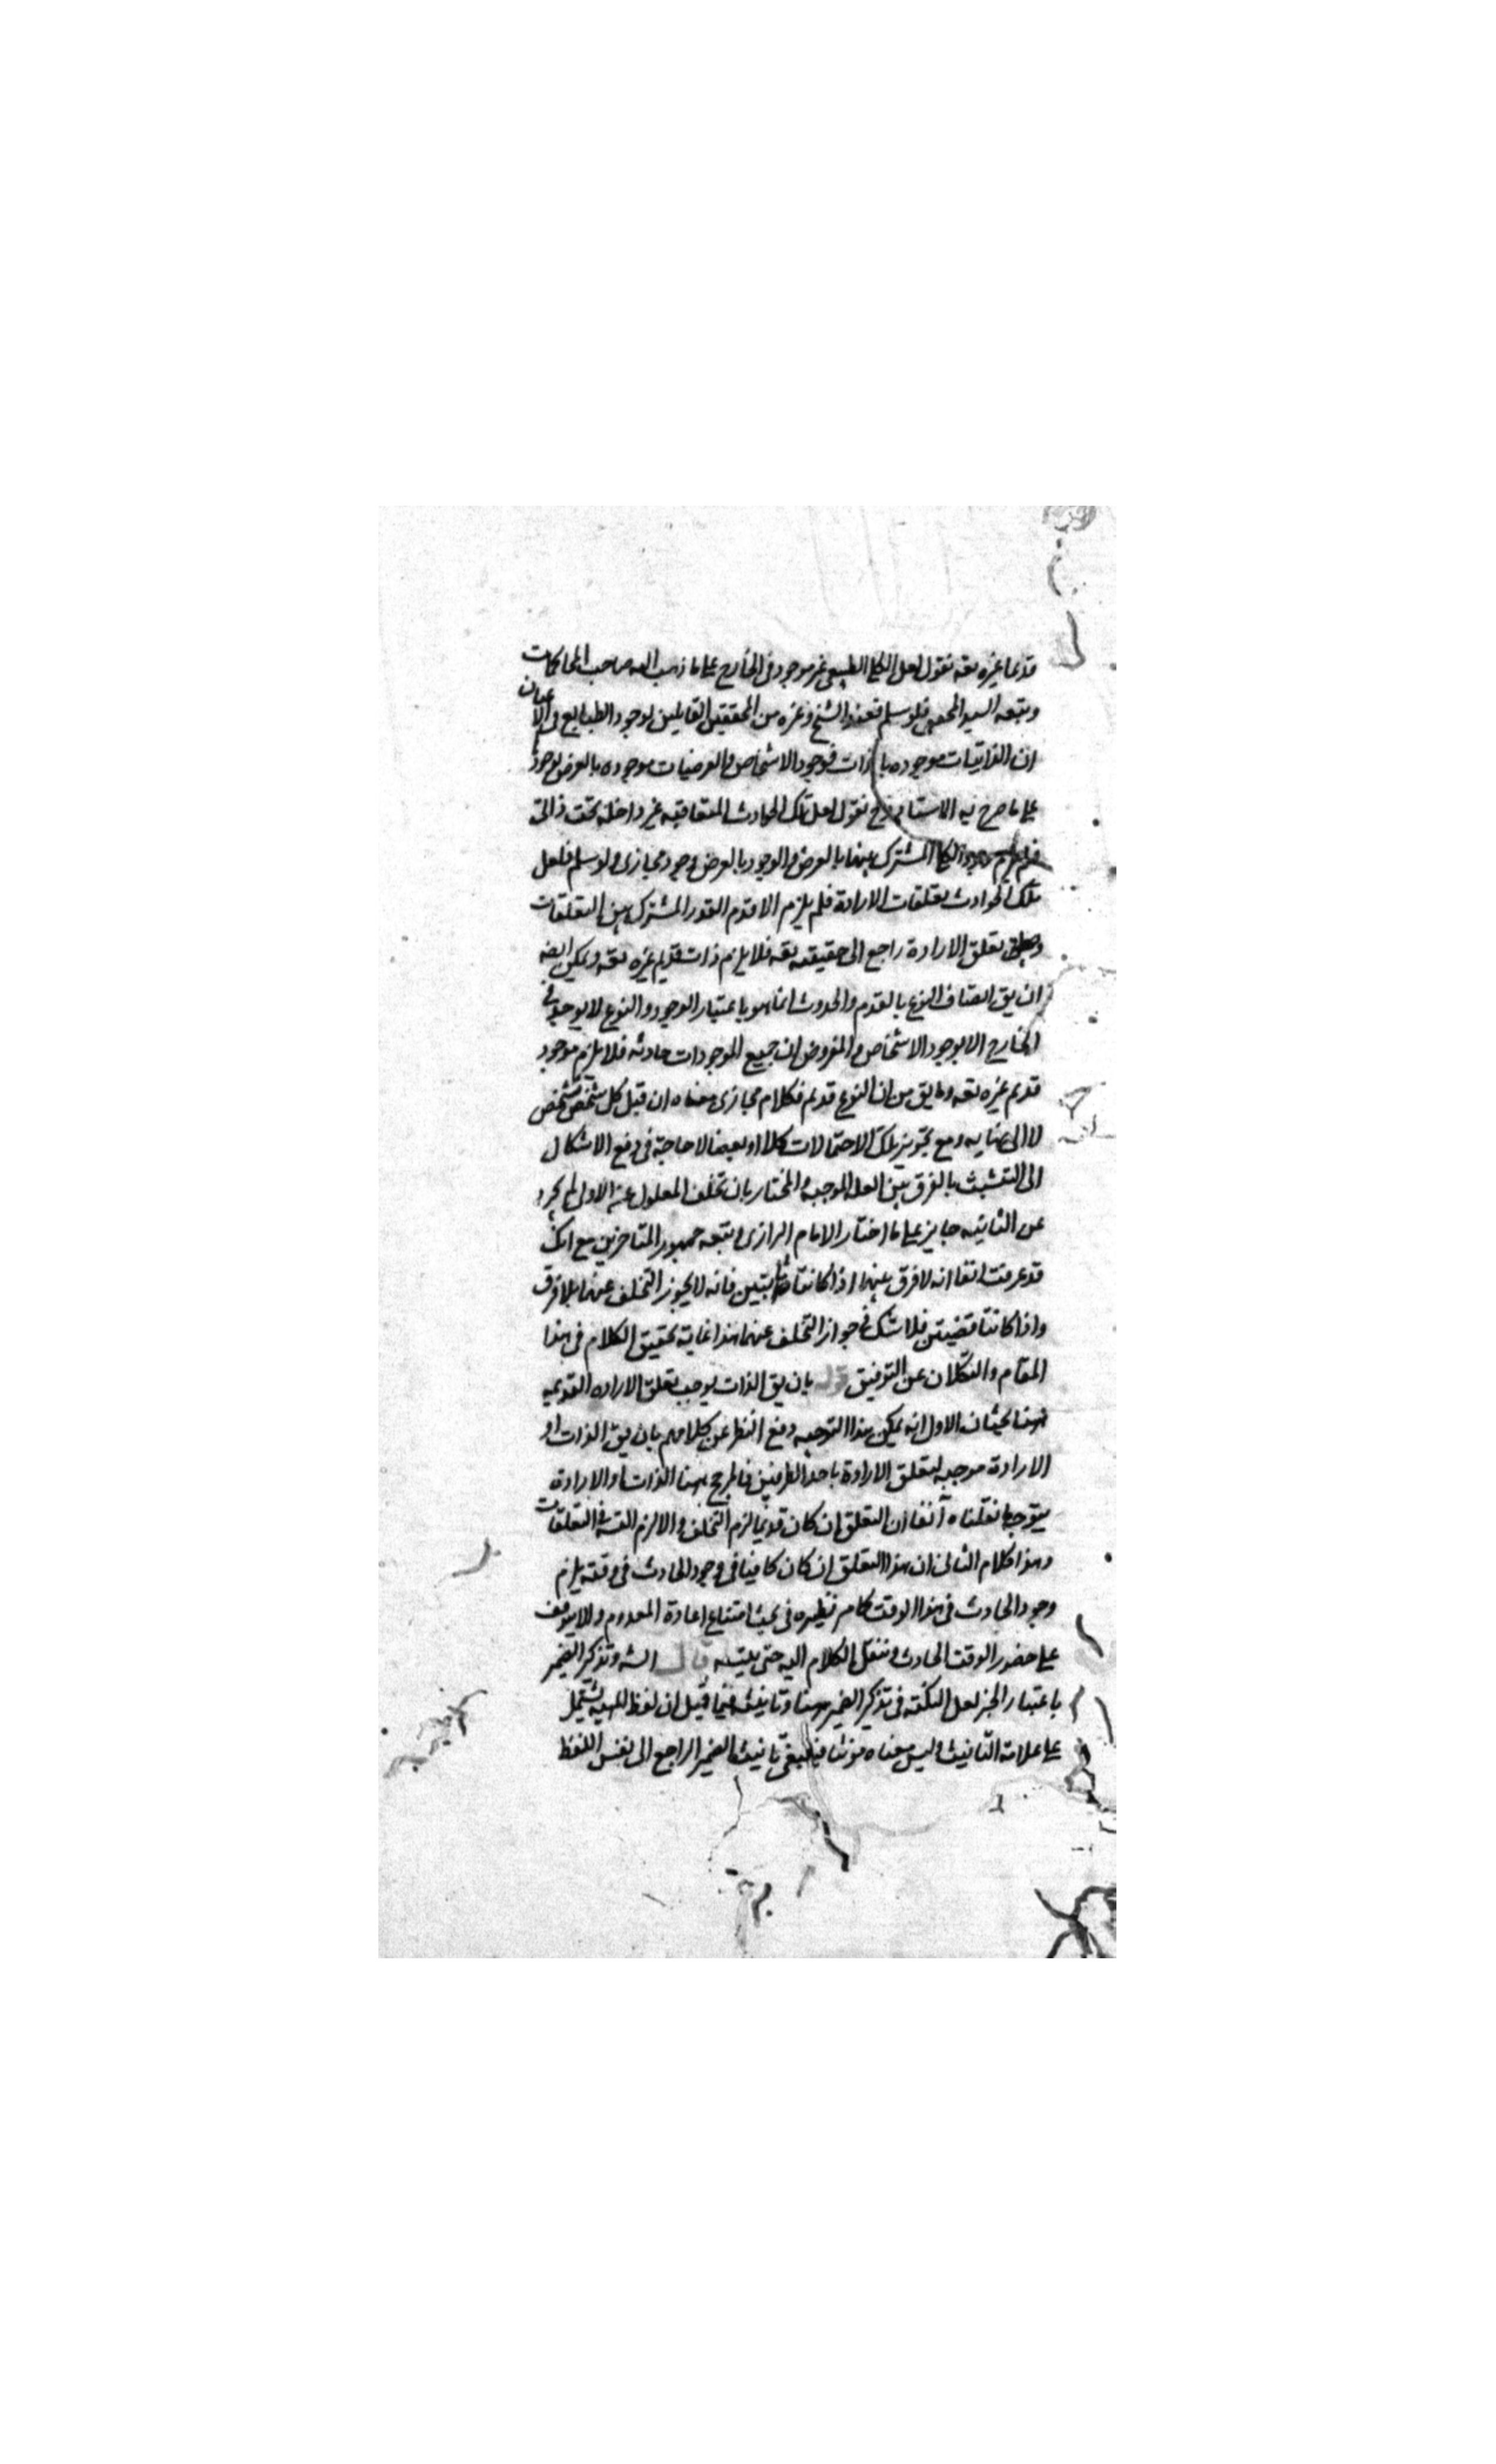 قديما غيره تعه نقول لعل الكلي الطبيعي غير موجود في الخارج على ما ذهب اليه صاحب المحاكمات
وتبعه السيد المحقق فلو سلم فعند الشيخ وغيره من المحققين القايلين بوجود الطبايع في الاعيان
ان الذاتيات موجوده بالذات بوجود الاشخاص والعرضيات موجوده بالعرض بوجود
على ما صرح به الاستاد فح نقول لعل تلك الحوادث المتعاقبه غير داخله تحت ذاتي
فلم يلزم وجود الكلي المشترك بينها بالعرض والوجود بالعرض وجود مجازى ولو سلم فلعل
تلك الحوادث تعلقات الارادة فلم يلزم الا قدم القدر المشترك بين التعلقات
تعلق الارادة راجع الى حقيقته تعه فلا يلزم ذات قديم غيره تعه ويمكن ايضه
ان يق اتصاف النوع بالقدم والحدوث انما هو باعتبار الوجود والنوع لا يوجد في
الخارج الا بوجود الاشخاص والمفروض ان جميع الموجودات حادثه فلا يلزم موجود
قديم غيره تعه وما يق من ان النوع قديم فكلام مجازى معناه ان قبل كل شخص شخص
لا الى نهايه ومع تجويز تلك الاحتمالات كلا او بعضا لا حاجة في دفع الاشكال
الى التشبث بالفرق بين العله الموجبه والمختار بان تخلف المعلول عن الاولى لم يجز و
عن الثانيه جايز على ما اختار الامام الرازى وتبعه جمهور المتاخرين مع انك
قد عرفت انفا انه لا فرق بينهما اذا كانتا تامتين فانه لا يجوز التخلف عنهما بلا فرق
واذا كانتا ناقصتين فلا شك في جواز التخلف عنهما هذا غاية تحقيق الكلام في هذا
المقام والتكلان عن التوفيق قوله بان يق الذات يوجب تعلق الاراده القديمه
ههنا بحثان الاول انه يمكن بهذا التوجيه دفع النظر عن كلامهم بان يق الذات او
الارادة موجبه لتعلق الارادة باحد الطرفين فالمرجح ههنا الذات او الارادة
يتوجه ما نقلناه آنفا ان التعلق ان كان قديما لزم التخلف والا لزم التسه في التعلقات
وهذا كلام الثاني ان هذا التعلق ان كان كافيا في وجود الحادث في وقته يلزم
وجود الحادث في هذا الوقت كما مر نظيره في بحث امتناع اعادة المعدوم والا يتوقف
على حضور الوقت الحادث وننقل الكلام اليه حتى يتسه قال الشه وتذكير الضمير
باعتبار الخبر لعل النكته في تذكير الضمير ههنا وتانيثه فيما قيل ان لفظ المهيه يشتمل
على علامة التانيث وليس معناه مؤنثا فينبغي تانيث الضمير الراجع الى نفس اللفظ